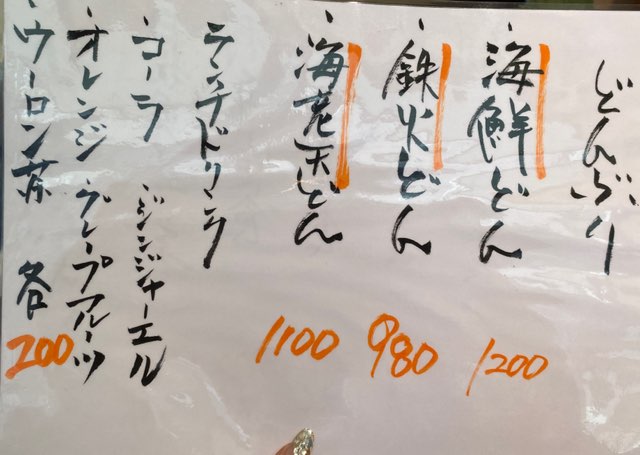 どんぶり
、海鮮どん 1200
、鉄火どん 980
、海老天どん 1100
ランチドリンク
、コーラ 、ジンジャーエル
、オレンジ 、グレープフルーツ
、ウーロン茶 各200